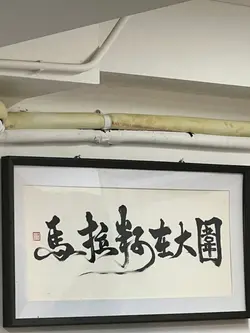 馬拉籽在大圍